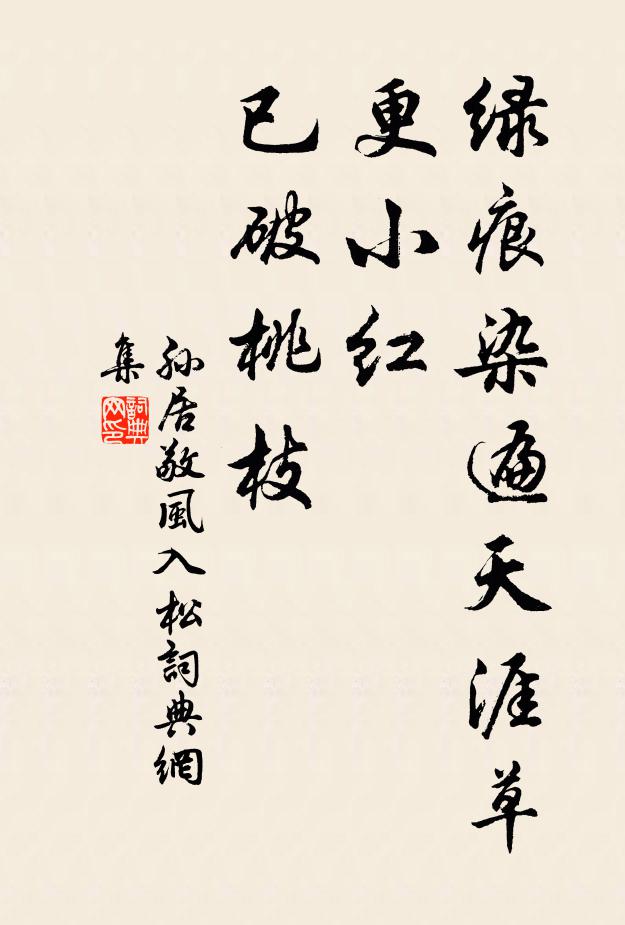 绿痕染遍天涯草
更小红
已破桃枝
孙居敬風入松詞典網
集
詞典
网印